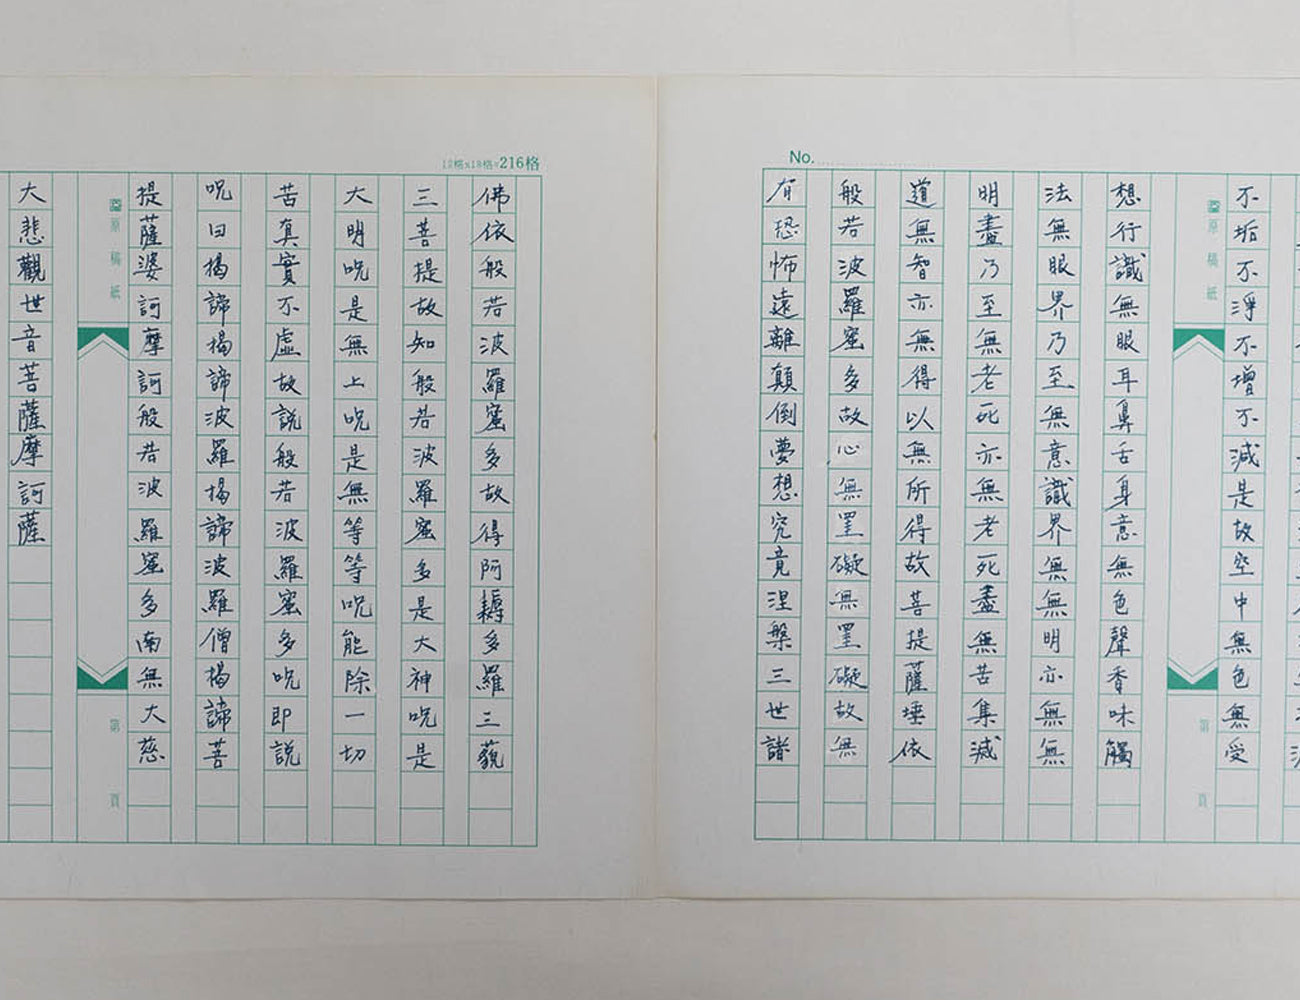 No.
不垢不淨不增不減是故空中無色無受
原稿紙
第 頁
想行識無眼耳鼻舌身意無色聲香味觸
法無眼界乃至無意識界無無明亦無無
明盡乃至無老死亦無老死盡無苦集滅
道無智亦無得以無所得故菩提薩埵依
般若波羅蜜多故心無罣礙無罣礙故無
有恐怖遠離顛倒夢想究竟涅槃三世諸
12格x18格=216格
佛依般若波羅蜜多故得阿耨多羅三藐
三菩提故知般若波羅蜜多是大神呪是
大明呪是無上呪是無等等呪能除一切
苦真實不虛故説般若波羅蜜多呪即説
呪曰揭諦揭諦波羅揭諦波羅僧揭諦菩
提薩婆訶摩訶般若波羅蜜多南無大慈
原稿紙
第 頁
大悲觀世音菩薩摩訶薩